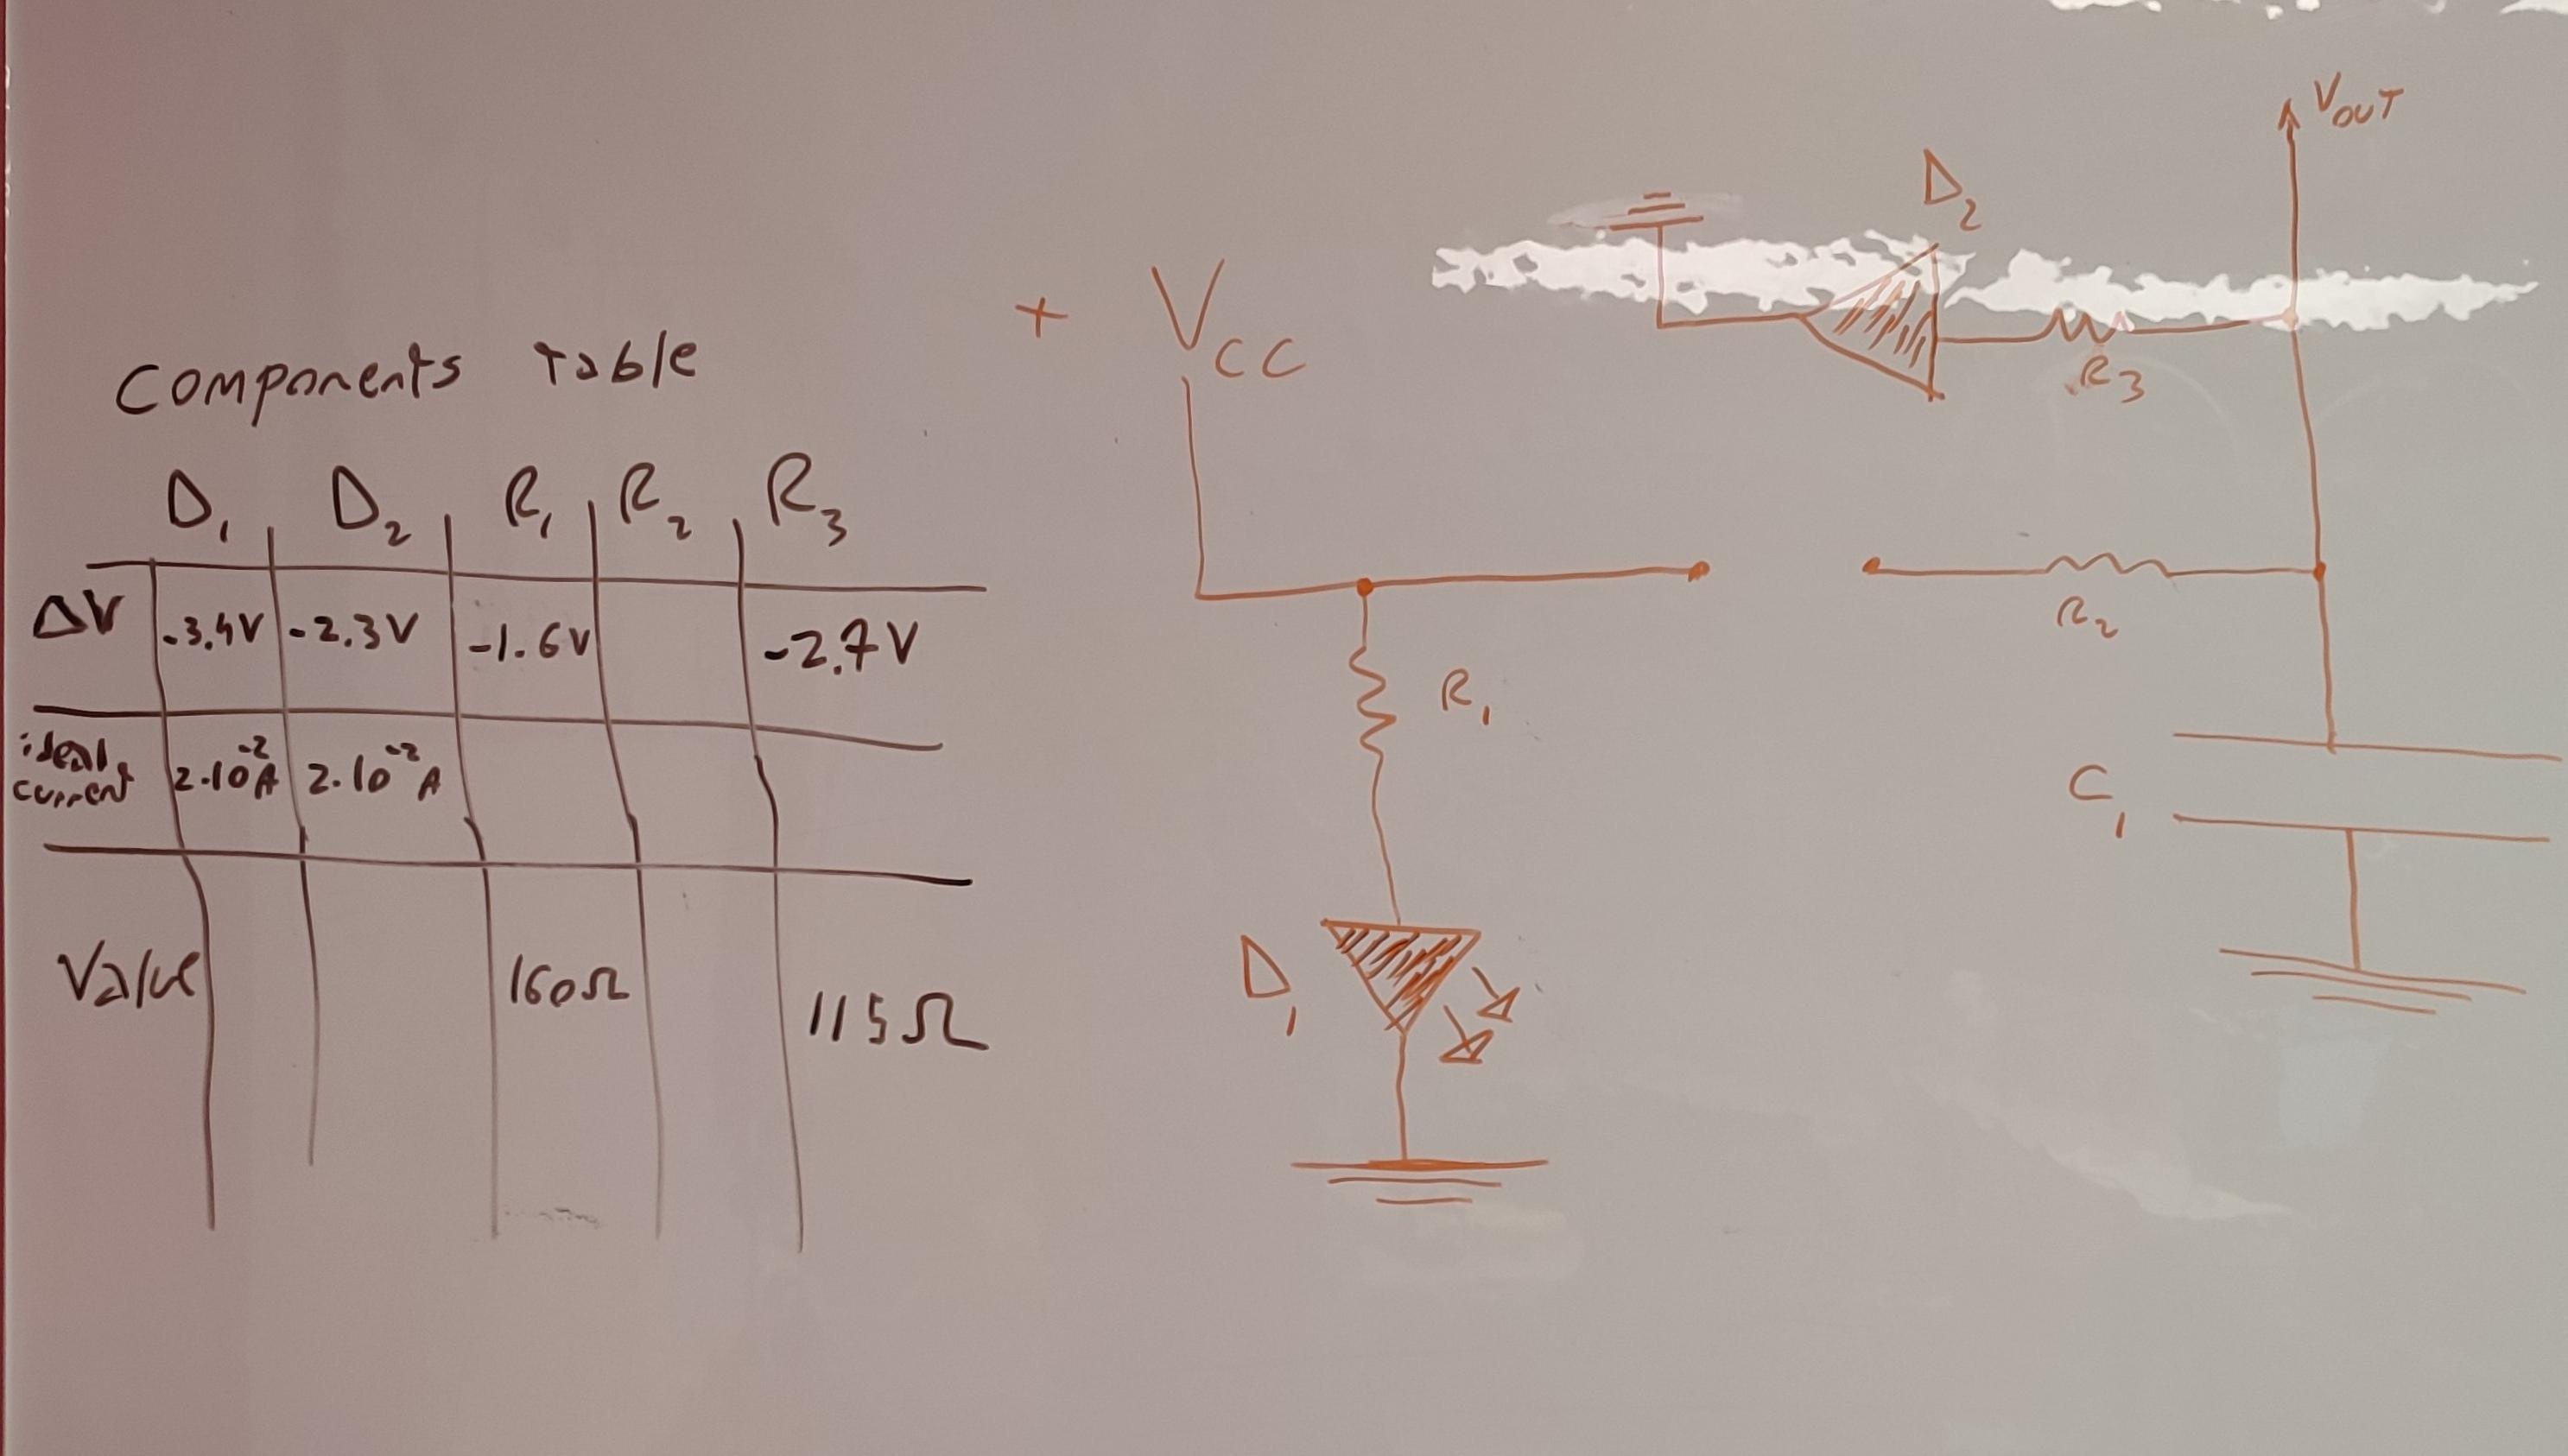 Components Table
D₁ D₂ R₁ R₂ R₃
ΔV -3.4V -2.3V -1.6V -2.7V
ideal current 2.10⁻²A 2.10⁻²A
Value 160Ω 115Ω
+ VCC
VOUT
D₂
R₃
R₂
R₁
C₁
D₁